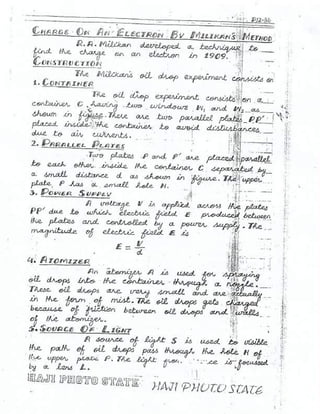 P12-36
CHARGE ON AN ELECTRON BY MILIKAN'S METHOD
R.A. Milikan developed a technique to
find the charge on an electron in 1909.
CONSTRUCTION
The Milikan's oil drop experiment consists on
1. CONTAINER
The oil drop experiment consists on a
container C having two windows W₁ and W₂ as
shown in figure. There are two parallel plates PP'
placed inside the container to avoid disturbances
due to air currents.
2. PARALLEL PLATES
Two plates P and P' are placed parallel
to each other inside the container C separated by
a small distance d as shown in figure. The upper
plate P has a small hole H.
3. POWER SUPPLY
A voltage V is applied across the plates
PP' due to which electric field E produced between
the plates and controlled by a power supply. The
magnitude of electric field E is
E = V/d
4. ATOMIZER
An atomizer A is used for spraying
oil drops into the container through a nozzle.
These oil drops are very small and are actually
in the form of mist. The oil drops gets charged
because of friction between oil drops and walls
of the atomizer.
5. SOURCE OF LIGHT
A source of light S is used to visible
the path of oil drops pass through the hole H of
the upper plate P. The light is focussed
by a lens L.
HAJI PHOTO STATE HAJI PHOTO STATE